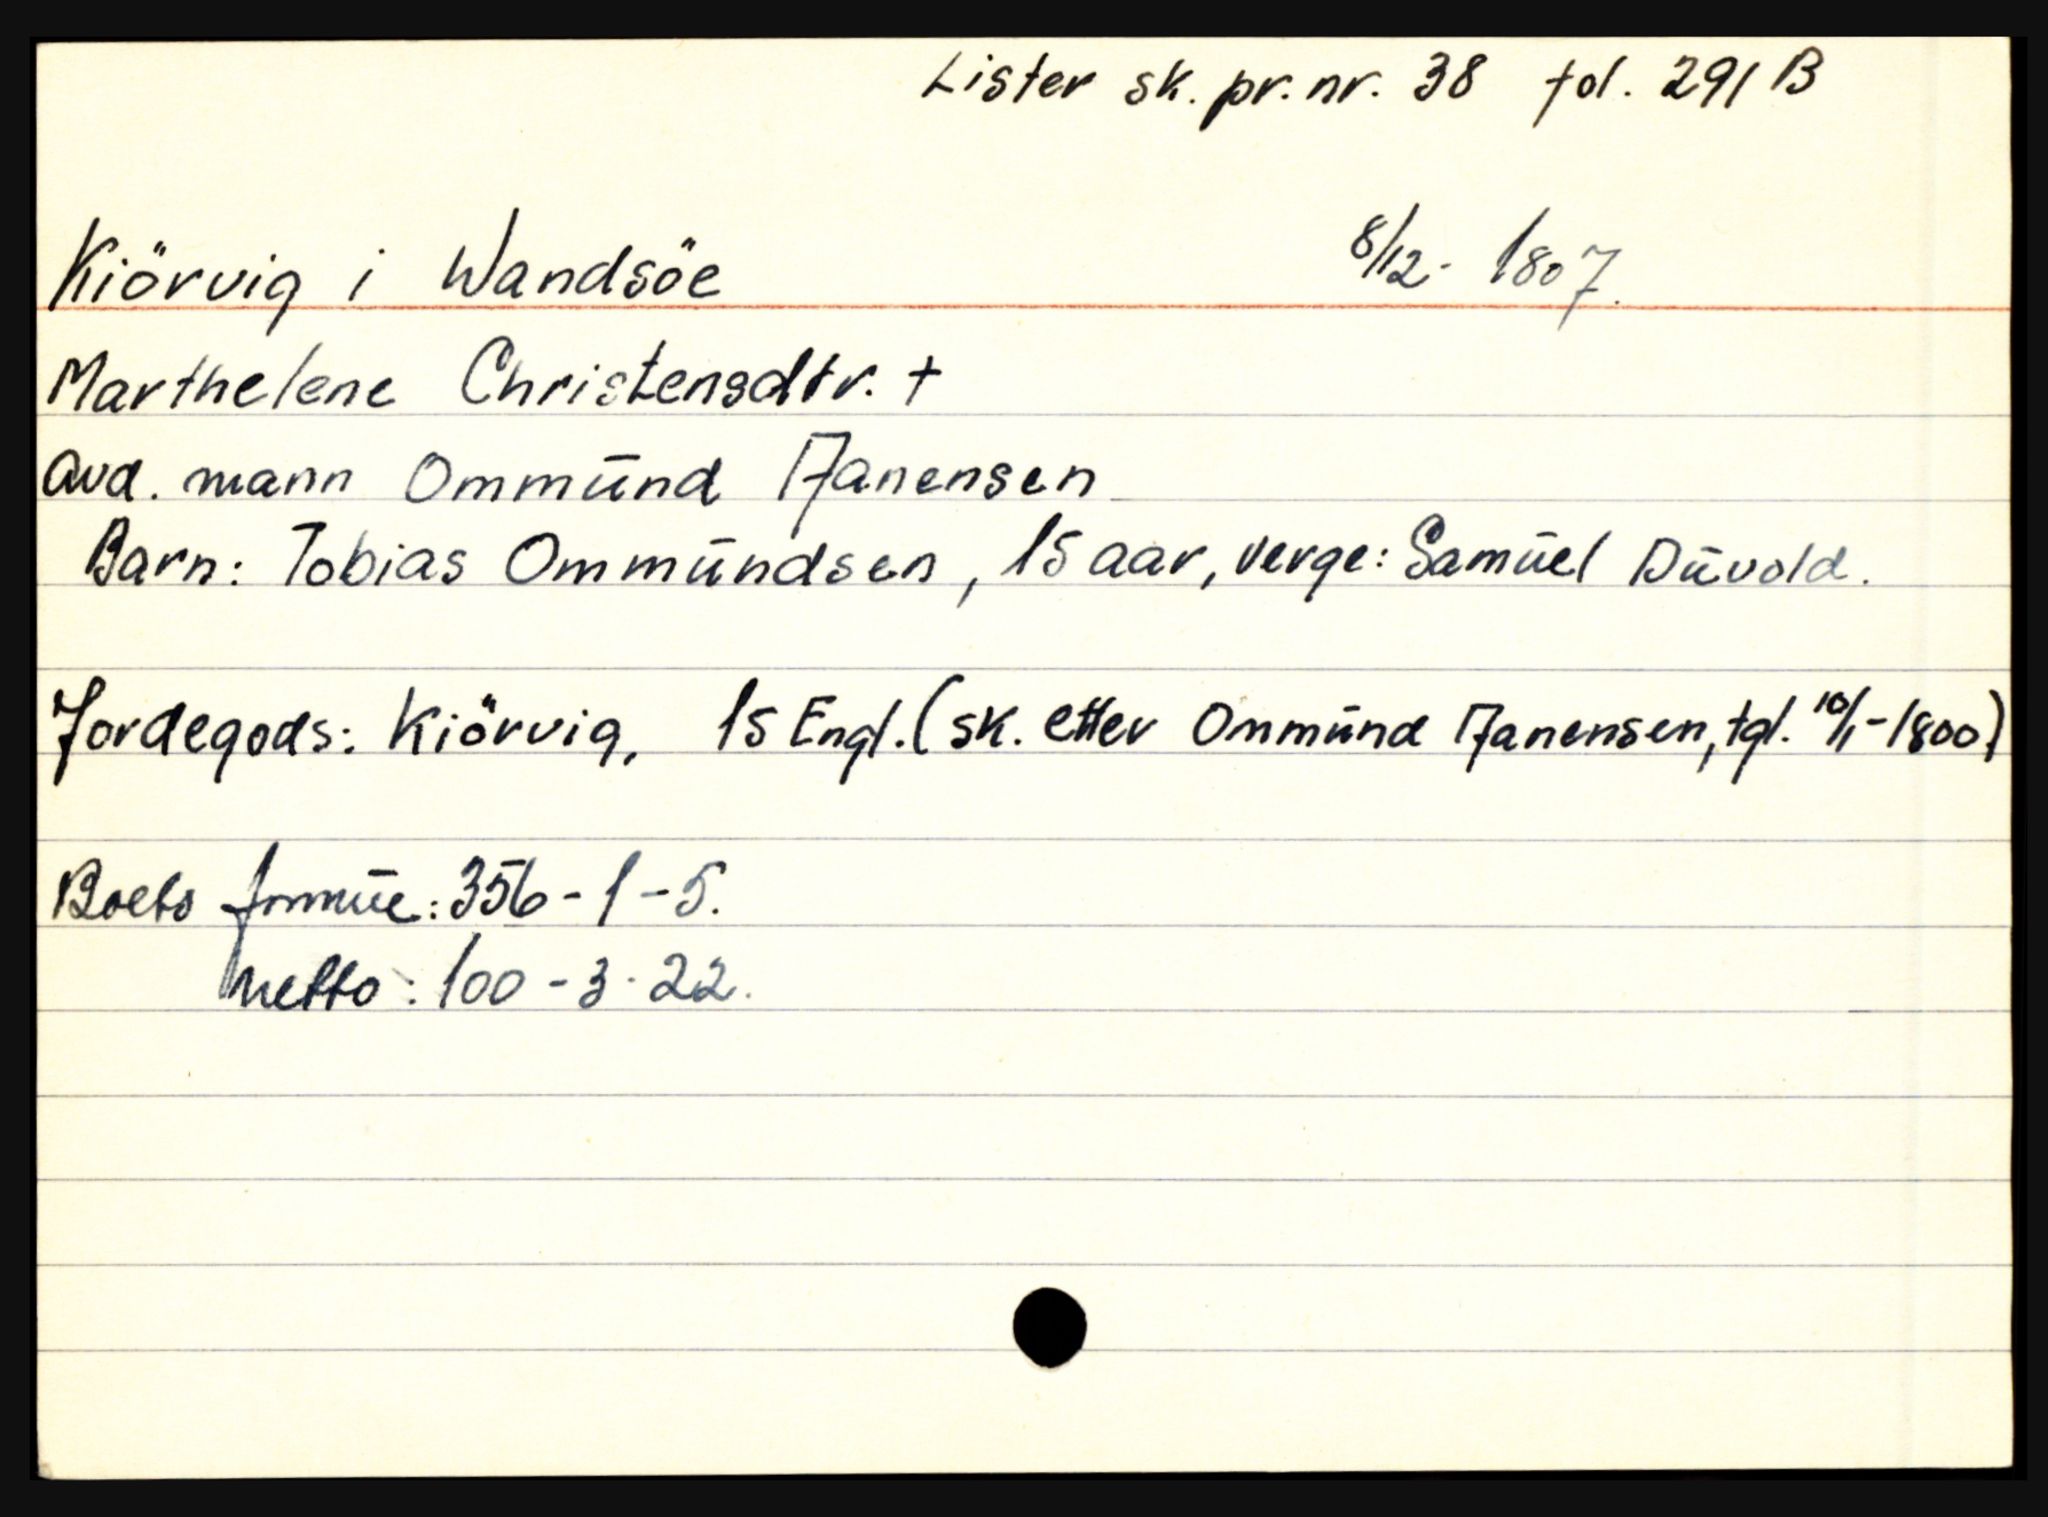 Lister sk. pr. nr. 38 fol. 291 B
Kiörvig i Wandsöe 8/12- 1807.
Marthelene Christensdtr. +
avd. mann Ommünd Janensen
Barn: Tobias Ommündsen, 15 aar, verge: Samüel Düvold.
Jordegods: Kiörvig, 15 Engl. (sk. etter Ommünd Janensen, tgl. 10/1-1800)
Boets formüe: 356-1-5.
netto: 100-3-22.